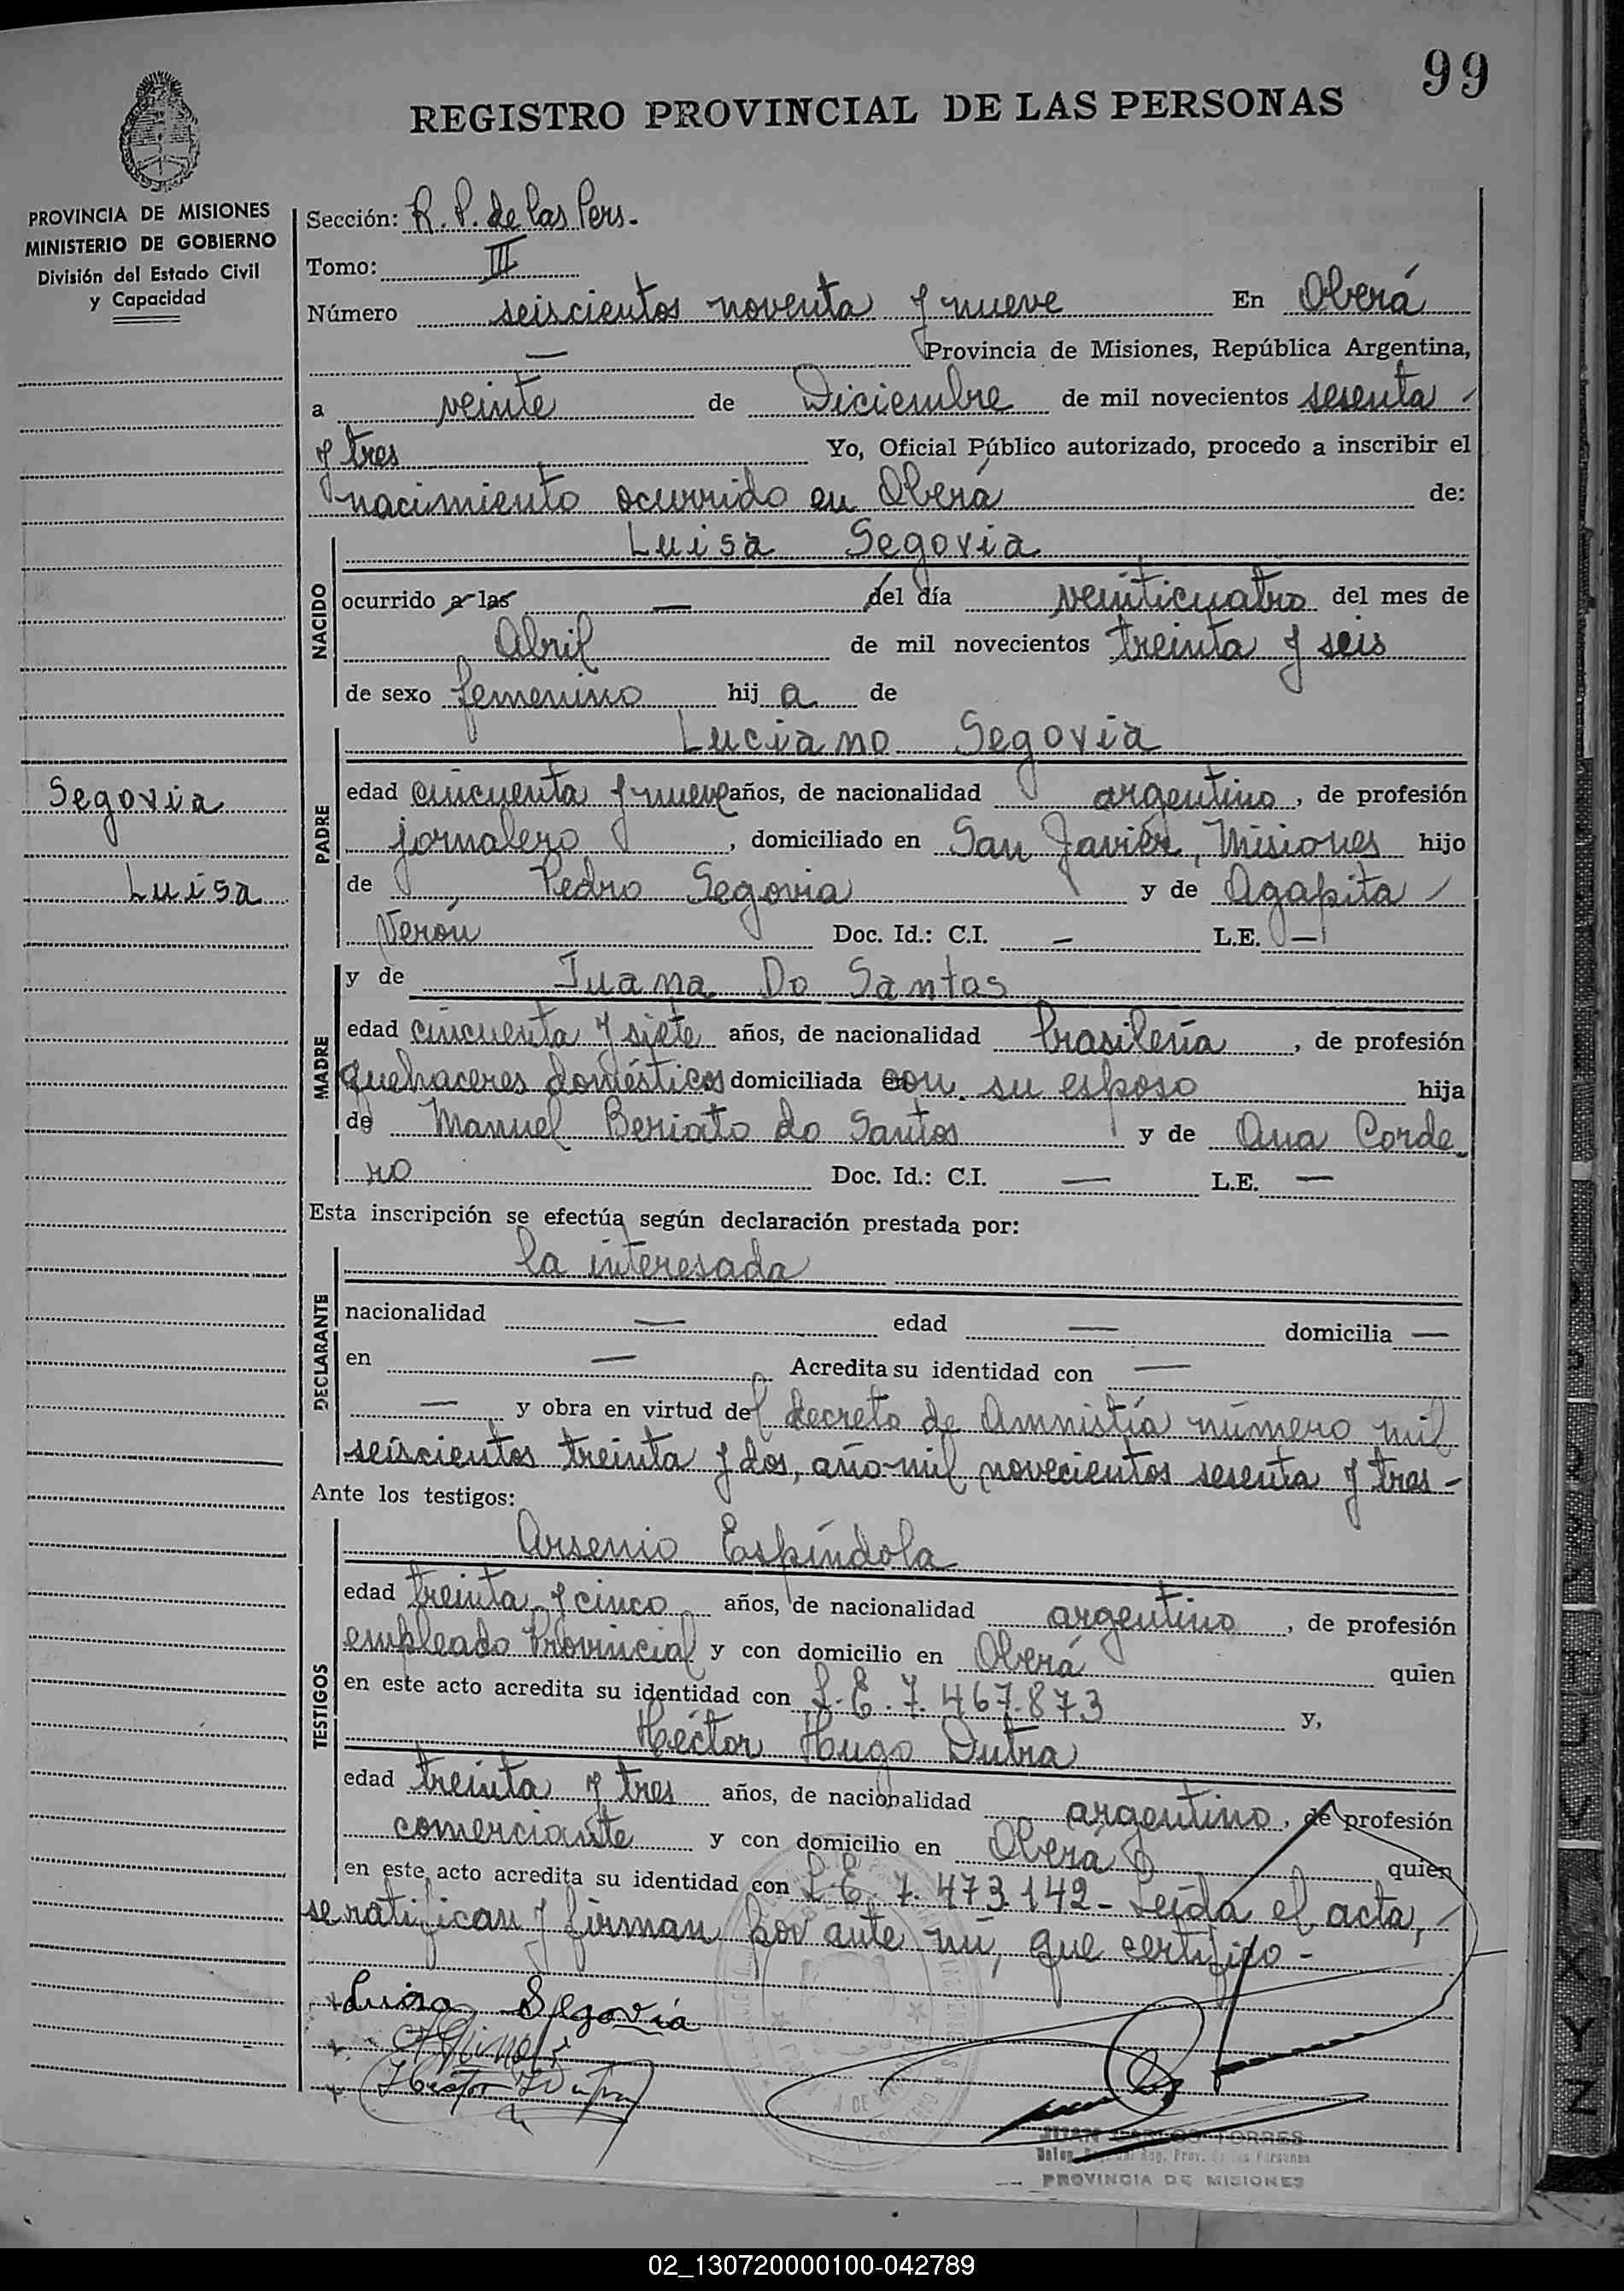 99
REGISTRO PROVINCIAL DE LAS PERSONAS
PROVINCIA DE MISIONES
MINISTERIO DE GOBIERNO
División del Estado Civil
y Capacidad
Sección: R. P. de las Pers.
Tomo: III
Número seiscientos noventa y nueve En Oberá
— Provincia de Misiones, República Argentina,
a veinte de Diciembre de mil novecientos sesenta
y tres Yo, Oficial Público autorizado, procedo a inscribir el
nacimiento ocurrido en Oberá de:
NACIDO
Luisa Segovia
ocurrido a las — del día veinticuatro del mes de
Abril de mil novecientos treinta y seis
de sexo femenino hij a de
Segovia
Luisa
PADRE
Luciano Segovia
edad cincuenta y nueve años, de nacionalidad argentino, de profesión
jornalero, domiciliado en San Javier, Misiones hijo
de Pedro Segovia y de Agapita
Verón Doc. Id.: C.I. — L.E. —
MADRE
y de Juana Do Santos
edad cincuenta y siete años, de nacionalidad brasileña, de profesión
quehaceres domésticos domiciliada con su esposo hija
de Manuel Beriato do Santos y de Ana Corde
ro Doc. Id.: C.I. — L.E. —
Esta inscripción se efectúa según declaración prestada por:
DECLARANTE
la interesada
nacionalidad — edad — domicilia —
en — Acredita su identidad con —
— y obra en virtud del decreto de Amnistía número mil
seiscientos treinta y dos, año mil novecientos sesenta y tres -
Ante los testigos:
TESTIGOS
Arsenio Espíndola
edad treinta y cinco años, de nacionalidad argentino, de profesión
empleado Provincial y con domicilio en Oberá quien
en este acto acredita su identidad con L.E. 7.467.873 y,
Héctor Hugo Dutra
edad treinta y tres años, de nacionalidad argentino, de profesión
comerciante y con domicilio en Oberá quien
en este acto acredita su identidad con L.E. 7.473.142 - Leída el acta,
se ratifican y firman por ante mí, que certifico -
Luisa Segovia
Hector Dutra
JUAN CARLOS TORRES
PROVINCIA DE MISIONES
X Y Z
02_130720000100-042789